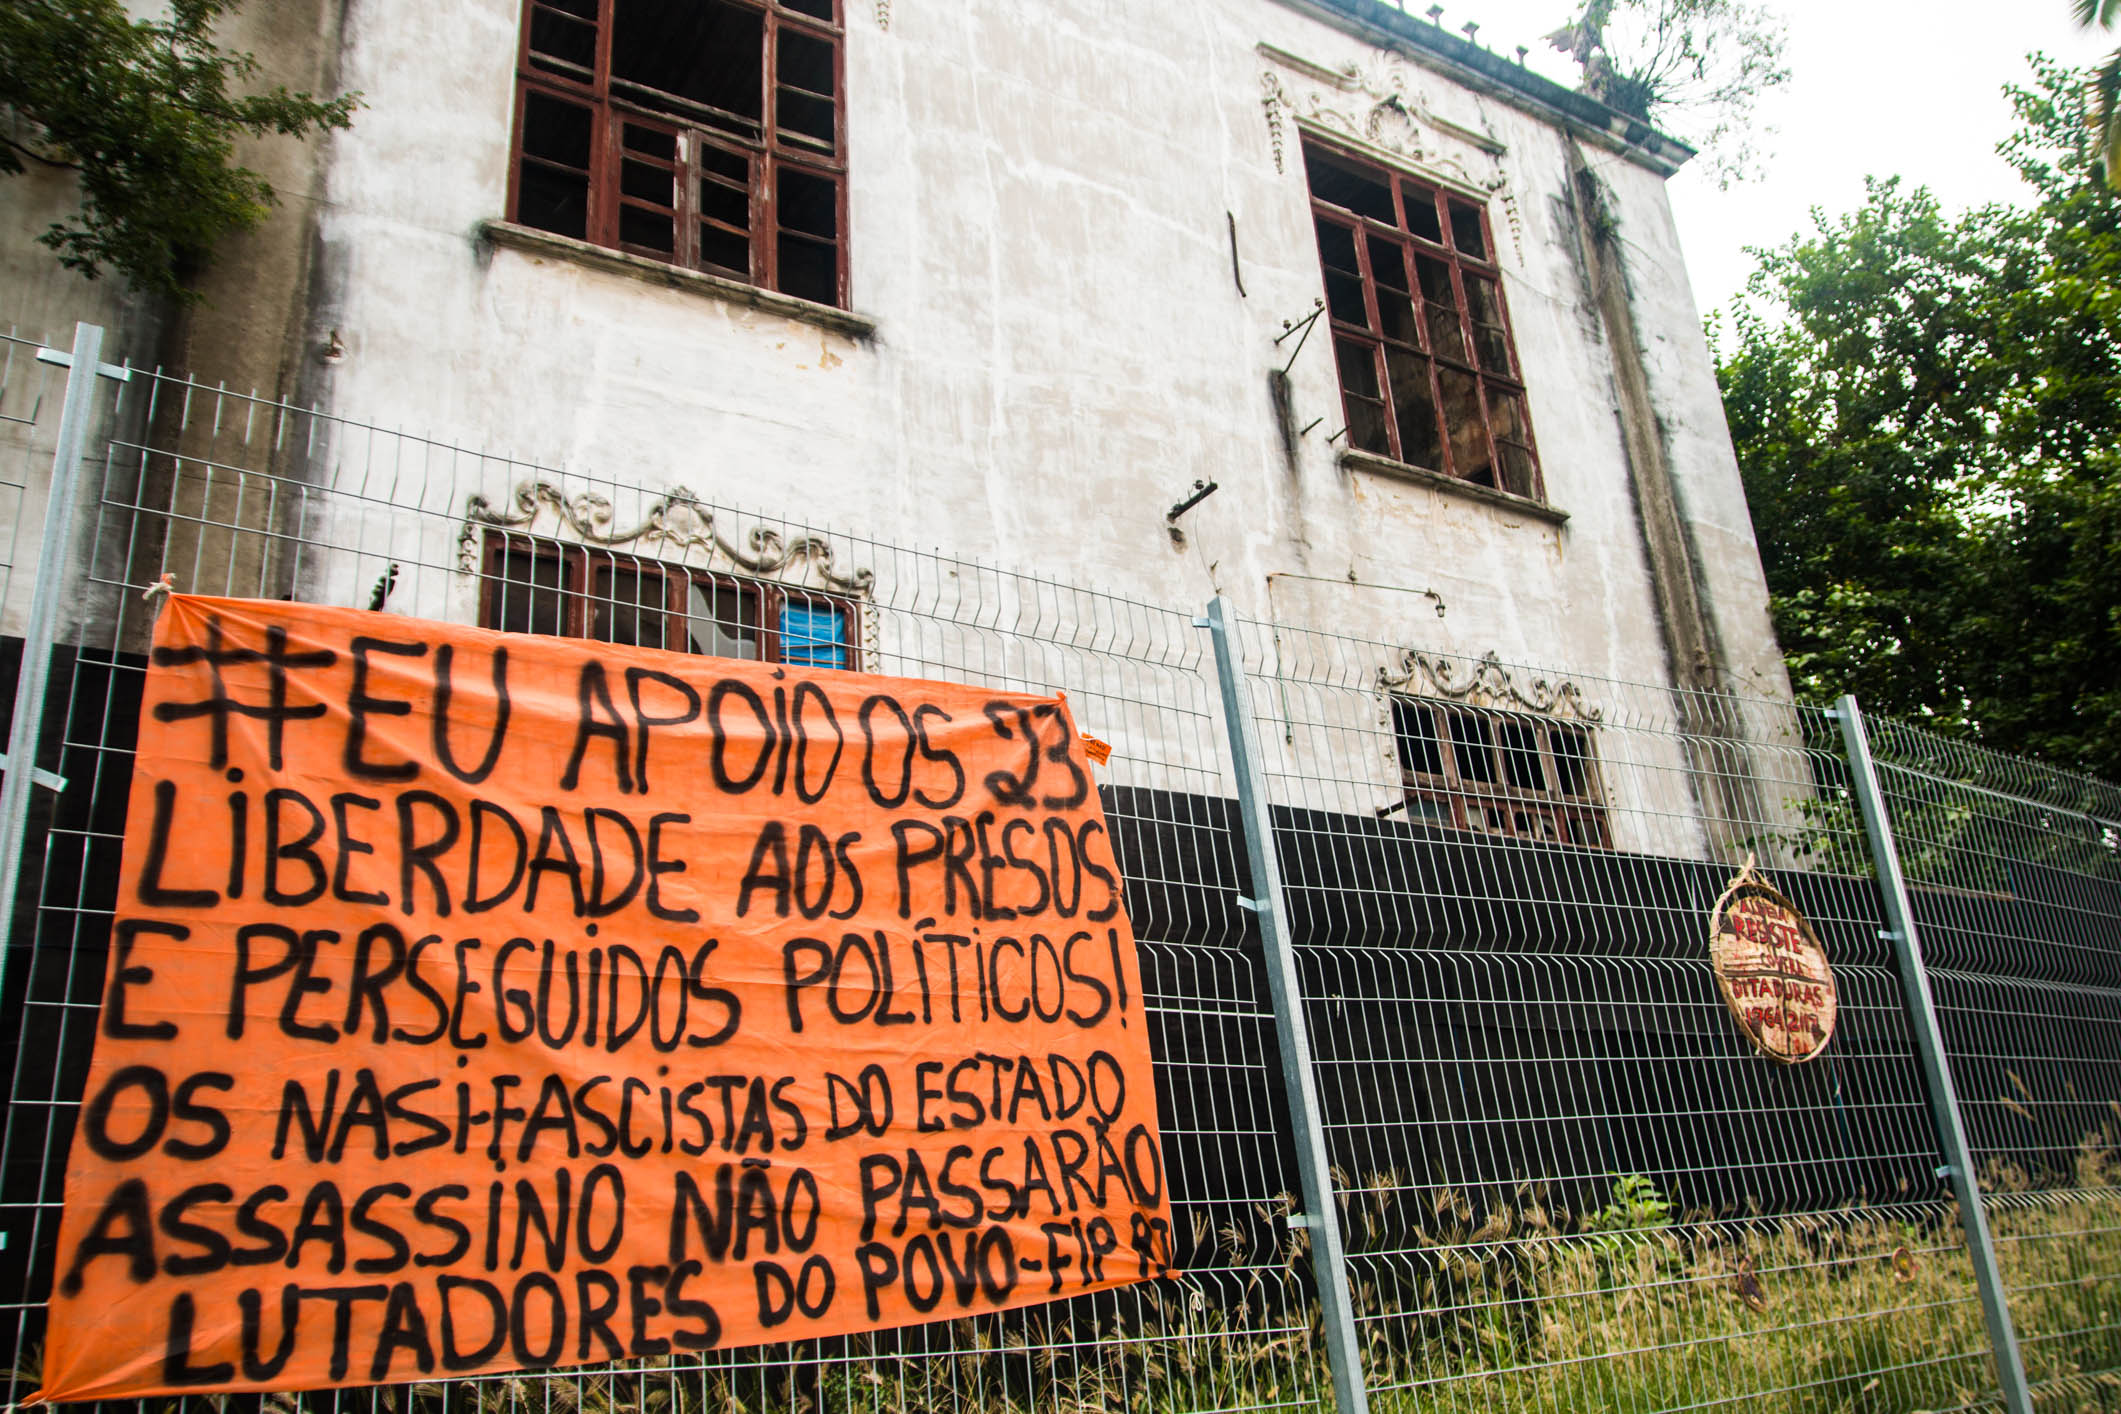 #EU APOIO OS 23
LIBERDADE AOS PRESOS
E PERSEGUIDOS POLÍTICOS!
OS NASI-FASCISTAS DO ESTADO
ASSASSINO NÃO PASSARÃO
LUTADORES DO POVO-FIP RJ
ALDEIA
RESISTE
CONTRA
DITADURAS
1964